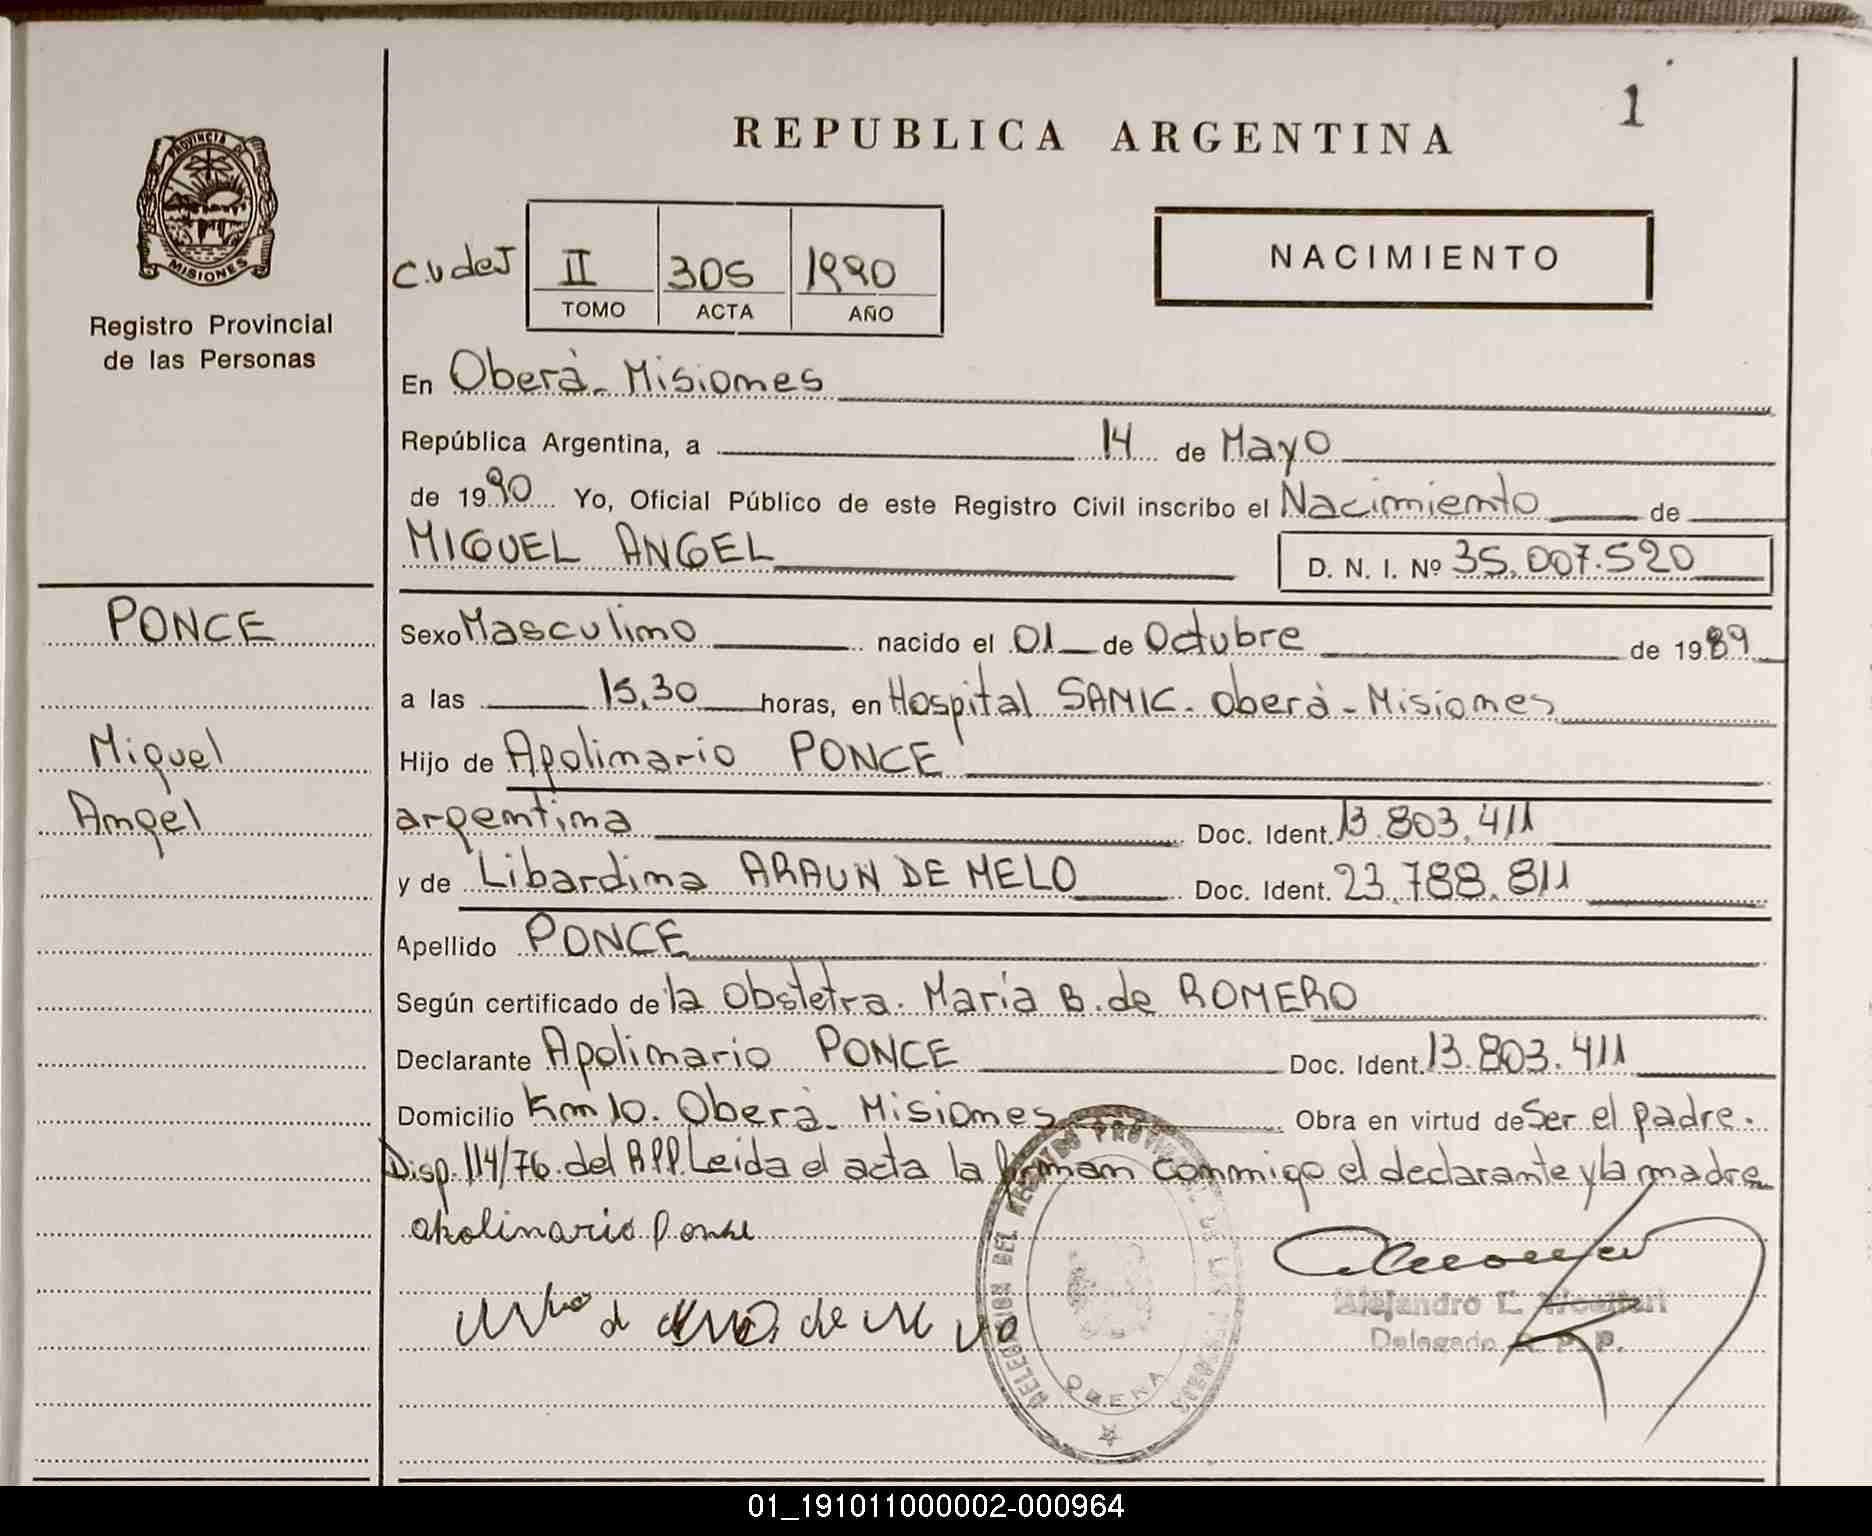 1
REPUBLICA ARGENTINA
PROVINCIA DE
MISIONES
Registro Provincial
de las Personas
C.V de J
II 305 1990
TOMO ACTA AÑO
NACIMIENTO
En Oberà - Misiones
República Argentina, a 14 de Mayo
de 1990 Yo, Oficial Público de este Registro Civil inscribo el Nacimiento de
MIGUEL ANGEL D. N. I. Nº 35.007.520
PONCE
Miguel
Angel
Sexo Masculino nacido el 01 de Octubre de 1989
a las 15,30 horas, en Hospital SAMIC. Oberà - Misiones
Hijo de Apolinario PONCE
argentina Doc. Ident. 13.803.411
y de Libardina ARAUN DE MELO Doc. Ident. 23.788.811
Apellido PONCE
Según certificado de la Obstetra. María B. de ROMERO
Declarante Apolinario PONCE Doc. Ident. 13.803.411
Domicilio Km 10. Oberà - Misiones Obra en virtud de Ser el padre.
Disp. 114/76. del R.P.P. Leida el acta la firman conmigo el declarante y la madre
apolinario Ponse
DELEGACION DEL REGISTRO PROVINCIAL DE LAS PERSONAS
OBERA
Alejandro
Delegado R. P. P.
01_191011000002-000964